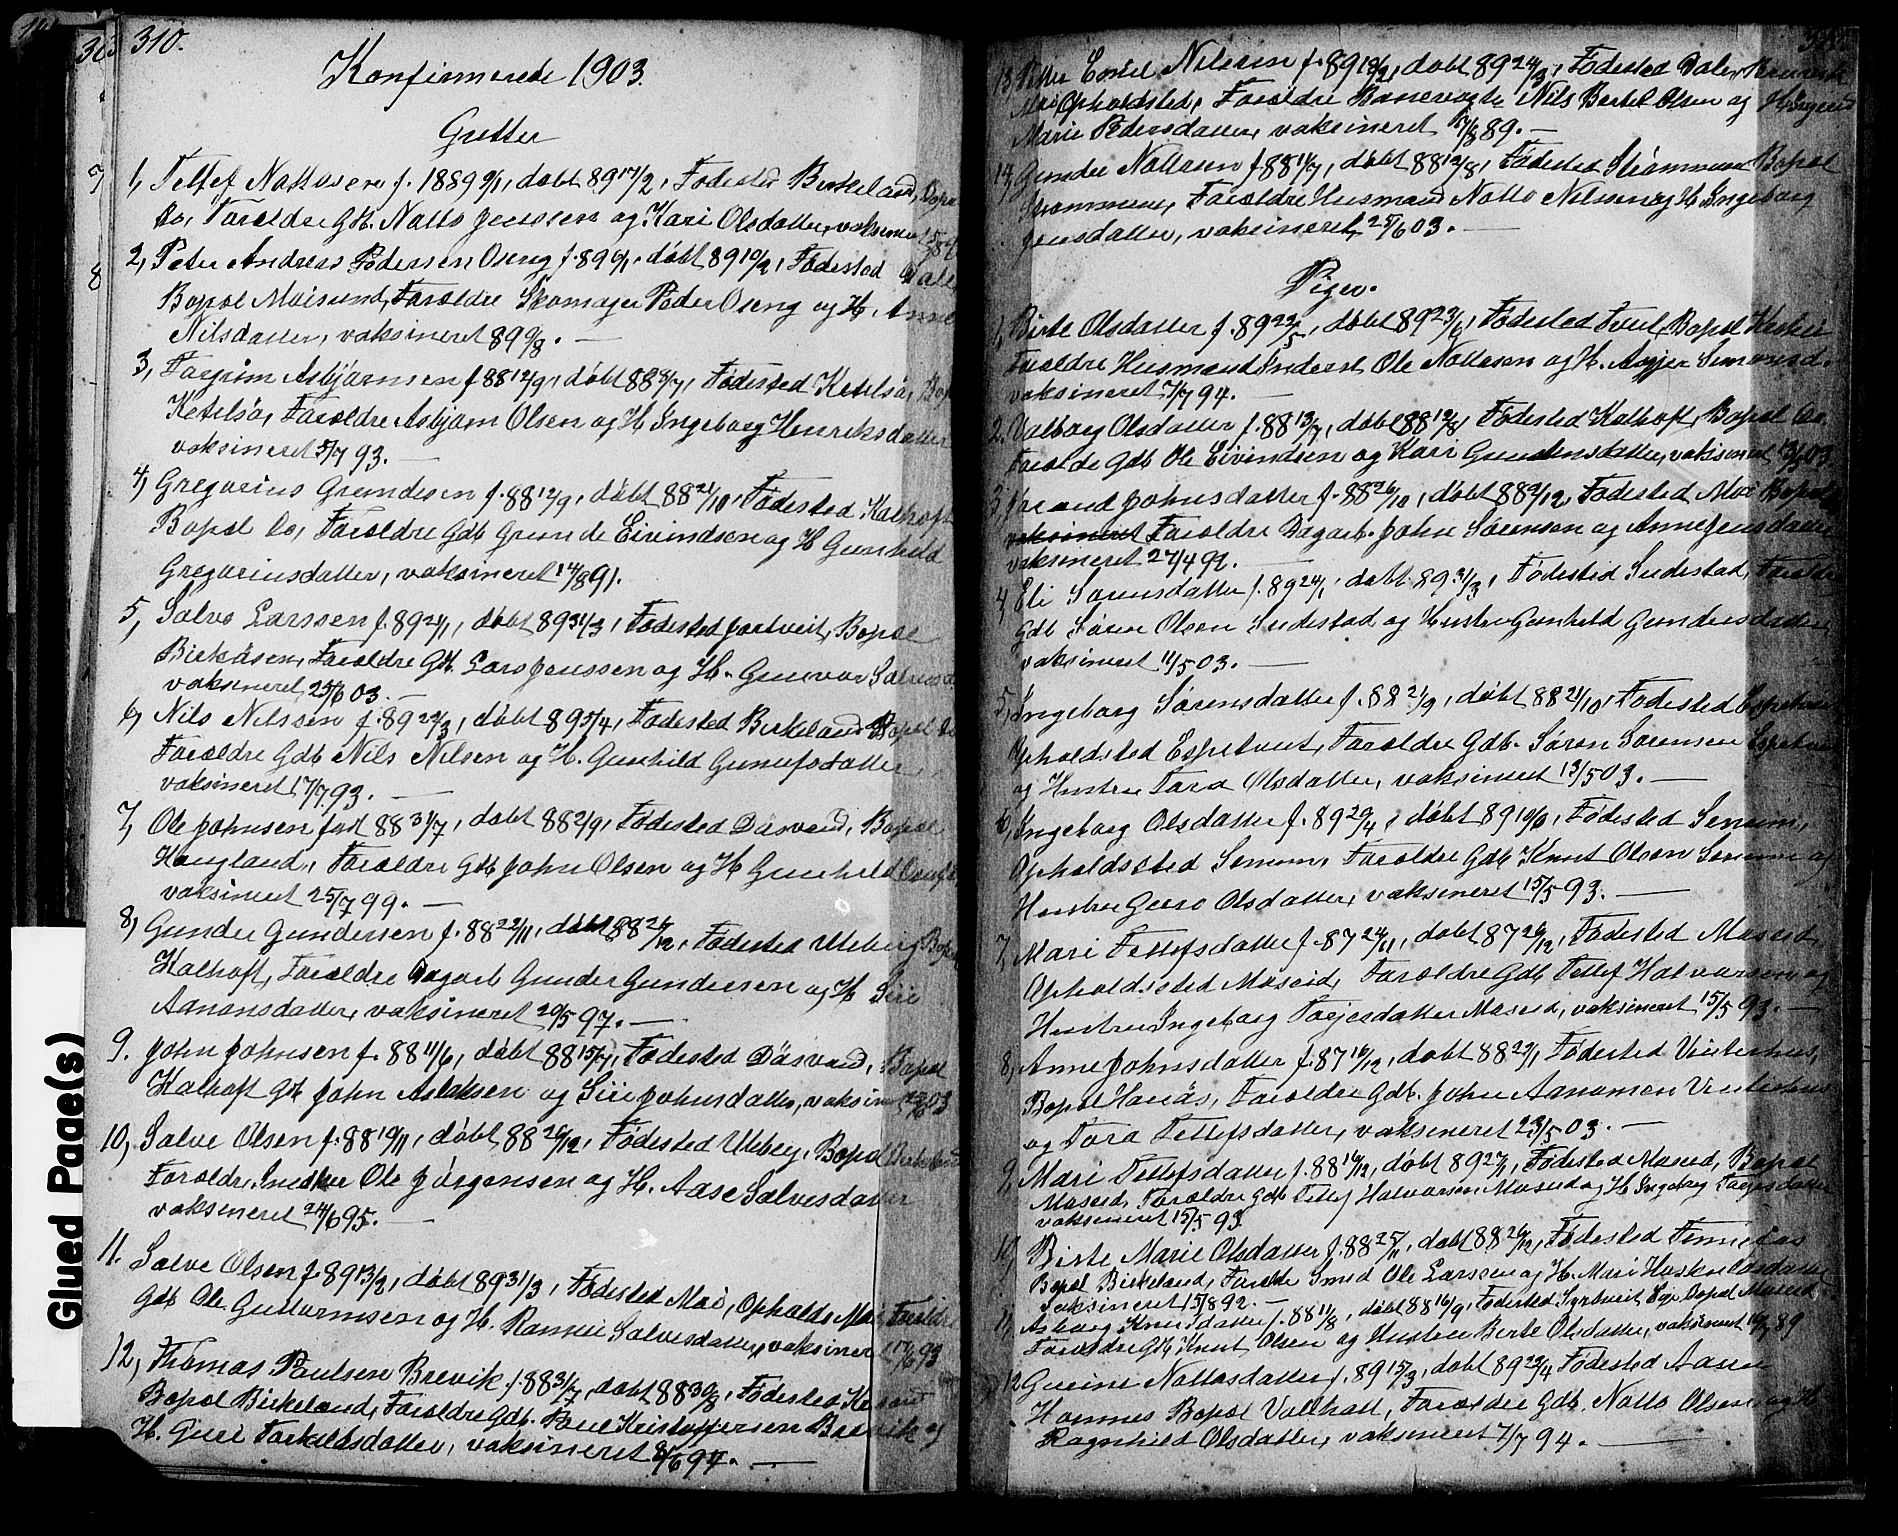 310.
Konfirmerede 1903.
Gutter
1, Tellef Nattosen f. 1889 9/1, døbt 89 17/2, Fødested Birkeland, Bopæl
Do, Forældre Gb. Natto Jenssen og Kari Olsdatter,
2, Peter Andreas Pedersen Oseng f. 89 6/1, døbt 89 10/2, Fødested Dale
Bopæl Moisund, Forældre Skomager Peder Oseng og H. Anne
Nilsdatter, vaksineret 89 9/8.
3, Torgrim Asbjørnsen f 88 12/9, døbt 88 Fødested Ketilså,
Ketilså, Forældre Asbjørn Olsen og H Ingeborg Henriksdatter
vaksineret 5/7 93.
4, Gregorius Grundesen f. 88 12/9, døbt 88 21/10, Fødested Kalhoft
Bopæl Do, Forældre Gdb Grunde Eivindsen og H Gunhild
Gregoriusdatter, vaksineret 14/8 91.
5, Salve Larssen f. 89 24/1, døbt 89 31/3, Fødested Jortveit, Bopæl
Birkåsen, Forældre Gdb. Lars Jenssen og H. Gunvor
vaksineret 25/6 03.
6, Nils Nilssen f. 89 døbt 89 5/4, Fødested Birkeland Bopæl Do
Forældre Gdb Nils Nilsen og H. Gunhild Gunufsdatter
vaksineret 17/7 93.
7, Ole Johnsen født 88 31/7, døbt 88 2/9, Fødested Dåsvand, Bopæl
Haugland, Forældre Gdb John Olsen og H Gunhild
vaksineret 25/7 99.
8, Gunder Gundersen f. 88 22/11, døbt 88 26/12, Fødested Uleberg
Kalhoft, Forældre Dagarb Gunder Gundersen og H Siri
Aanonsdatter, vaksineret 20/5 97.
9. John Johnsen f. 88 11/6, døbt 88 15/7, Fødested Dåsvand, Bopæl
Kalhoft Gdb John Aslaksen og Siri Johnsdatter,
10, Salve Olsen f. 88 19/11, døbt 88 26/12, Fødested Uleberg, Bopæl Birkeland
Forældre, Snedker Ole Jørgensen og H. Aase Salvesdatter
vaksineret 24/6 95.
11. Salve Olsen f. 89 13/2, døbt 89 31/3, Fødested Moi, Opholds Moi, Forældre
Gdb Ole Guttormsen og H. Salvesdatter, vaksineret
12, Thomas Paulsen Brevik f. 88 31/7, døbt 88 30/8, Fødested
Bopæl Birkeland, Forældre Gdb. Paul Kristoffersen Brevik og
H. Guri Torkildsdatter, vaksineret
13, Petter Emil Nilssen f. 89 døbt 89 24/3, Fødested Dale,
Moi Opholdsted, Forældre Banevogter Nils Bertel Olsen og
Marie Pedersdatter, vaksineret 89.
14, Gunder Nattosen f. 88 døbt 88 12/8, Fødested Strømmen Bopæl
Strømmen, Forældre Husmand Natto Nilssen og H Ingeborg
Jensdatter, vaksineret 25/6 03.
Piger.
1, Birte Olsdatter f. 89 22/5, døbt 89 23/6, Fødested Tveit, Bopæl
Forældre Husmand Ole Nattosen og H.
vaksineret 7/7 94.
2. Valborg Olsdatter f. 88 13/7, døbt 88 12/8, Fødested Kalhoft, Bopæl Do.
Forælde Gdb Ole Eivindsen og Kari Gundersdatter, vaksineret
3, Jorand Johnsdatter f. 88 26/10, døbt 88 2/12, Fødested Moi Bopæl
vaksineret Forældre Dagarb. John Sørensen og Anne Jensdatter
vaksineret 27/4 92.
4, Eli Sørensdatter f. 89 24/1, døbt 89 31/3, Fødested Sudestad, Forældre
Gdb Søren Olsen Sudestad og Hustru Gunhild Gundersdatter,
vaksineret 11/5 03.
5, Ingeborg Sørensdatter f. 88 21/9, døbt 88 21/10, Fødested Espetveit
Opholdsted Espetveit, Forældre Gdb. Søren Sørensen Espetveit
og Hustru Tora Olsdatter, vaksineret 13/5 03.
6, Ingeborg Olsdatter f. 89 20/4, døbt 89 10/6, Fødested Senum,
Opholdssted Senum, Forældre Gdb Knut Olsen Senum og
Hustru Guro Olsdatter, vaksineret 15/5 93.
7, Mari Tellefsdatter f. 87 24/11, døbt 87 26/12, Fødested Moseid,
Opholdssted Moseid, Forældre Gdb Tellef Halvorsen og
Hustru Ingeborg Torjesdatter Moseid, vaksineret 15/5 93.
8, Anne Johnsdatter f. 87 16/12, døbt 88 22/1, Fødested Vinterhus,
Bopæl Forældre Gdb. John Aanonsen Vinterhus
og Tora Tellefsdatter, vaksineret 23/5 03.
9, Mari Tellefsdatter f. 88 16/12, døbt 89 27/1, Fødested Moseid, Bopæl
Moseid, Forældre Gdb Tellef Halvorsen Moseid og H Ingeborg Torjesdatter
vaksineret 15/5 93.
10, Birte Marie Olsdatter f. 88 25/11, døbt 88 26/12, Fødested
Bopæl Birkeland, Forældre Smed Ole Larssen og H. Mari
Vaksineret 15/8 92.
11, Asborg Knutsdatter f. 88 11/8, døbt 88 16/9, Fødested Bopæl Moseid,
Forældre Gdb Knut Olsen og Hustru Birte Olsdatter, vaksineret 89
12 Gurine Nattosdatter f. 89 15/3, døbt 89 22/4 Fødested Aasen
Hornnes Bopæl Forældre Gdb. Natto Olsen og H
Ragnhild Olsdatter, vaksineret 7/7 94.
Glued Page(s)